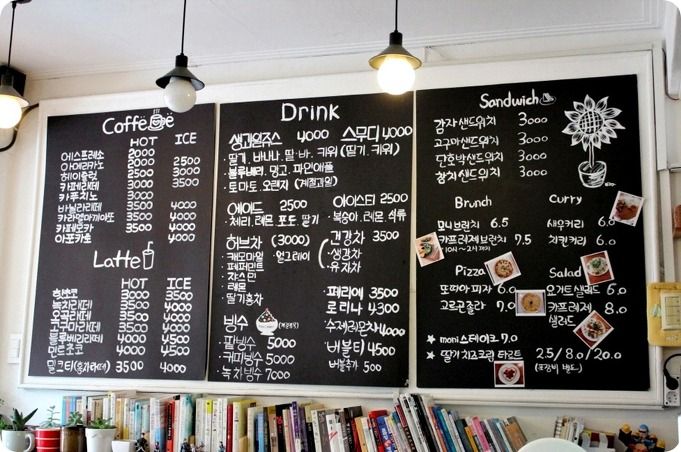 Coffee
HOT ICE
에스프레소 2000
아메리카노 2000 2500
헤이즐럿 2500 3000
카페라떼 3000 3500
카푸치노 3000
바닐라라떼 3500 4000
카라멜마끼아또 3500 4000
카페모카 3500 4000
아포카토 4000
Latte
HOT ICE
핫쵸코 3000 3500
녹차라떼 3000 3500
오곡라떼 3500 4000
고구마라떼 3500 4000
블루베리라떼 4000 4500
민트초코 4000 4500
밀크티(홍차라떼) 3500 4000
Drink
생과일쥬스 4000
딸기. 바나나. 딸·바. 키위
블루베리. 망고. 파인애플
토마토. 오렌지 (계절과일)
스무디 4000
(딸기. 키위)
에이드 2500
체리. 레몬. 포도. 딸기
아이스티 2500
복숭아. 레몬. 석류
허브차 (3000)
캐모마일 얼그레이
페퍼민트
쟈스민
레몬
딸기홍차
건강차 3500
생강차
유자차
빙수
팥빙수 5000
커피빙수 5000
녹차빙수 7000
페리에 3500
로리나 4300
수제레몬차 4000
버블티 4500
버블추가 500
Sandwich
감자샌드위치 3000
고구마샌드위치 3000
단호박샌드위치 3000
참치샌드위치 3000
Brunch
모니브런치 6.5
카프레제브런치 7.5
Curry
새우커리 6.0
치킨커리 6.0
Pizza
또띠아피자 5.0
고르곤졸라 7.0
Salad
요거트샐러드 5.0
카프레제 샐러드 8.0
★ moni스테이크 7.0
★ 딸기 치즈크림 타르트 2.5/8.0/20.0